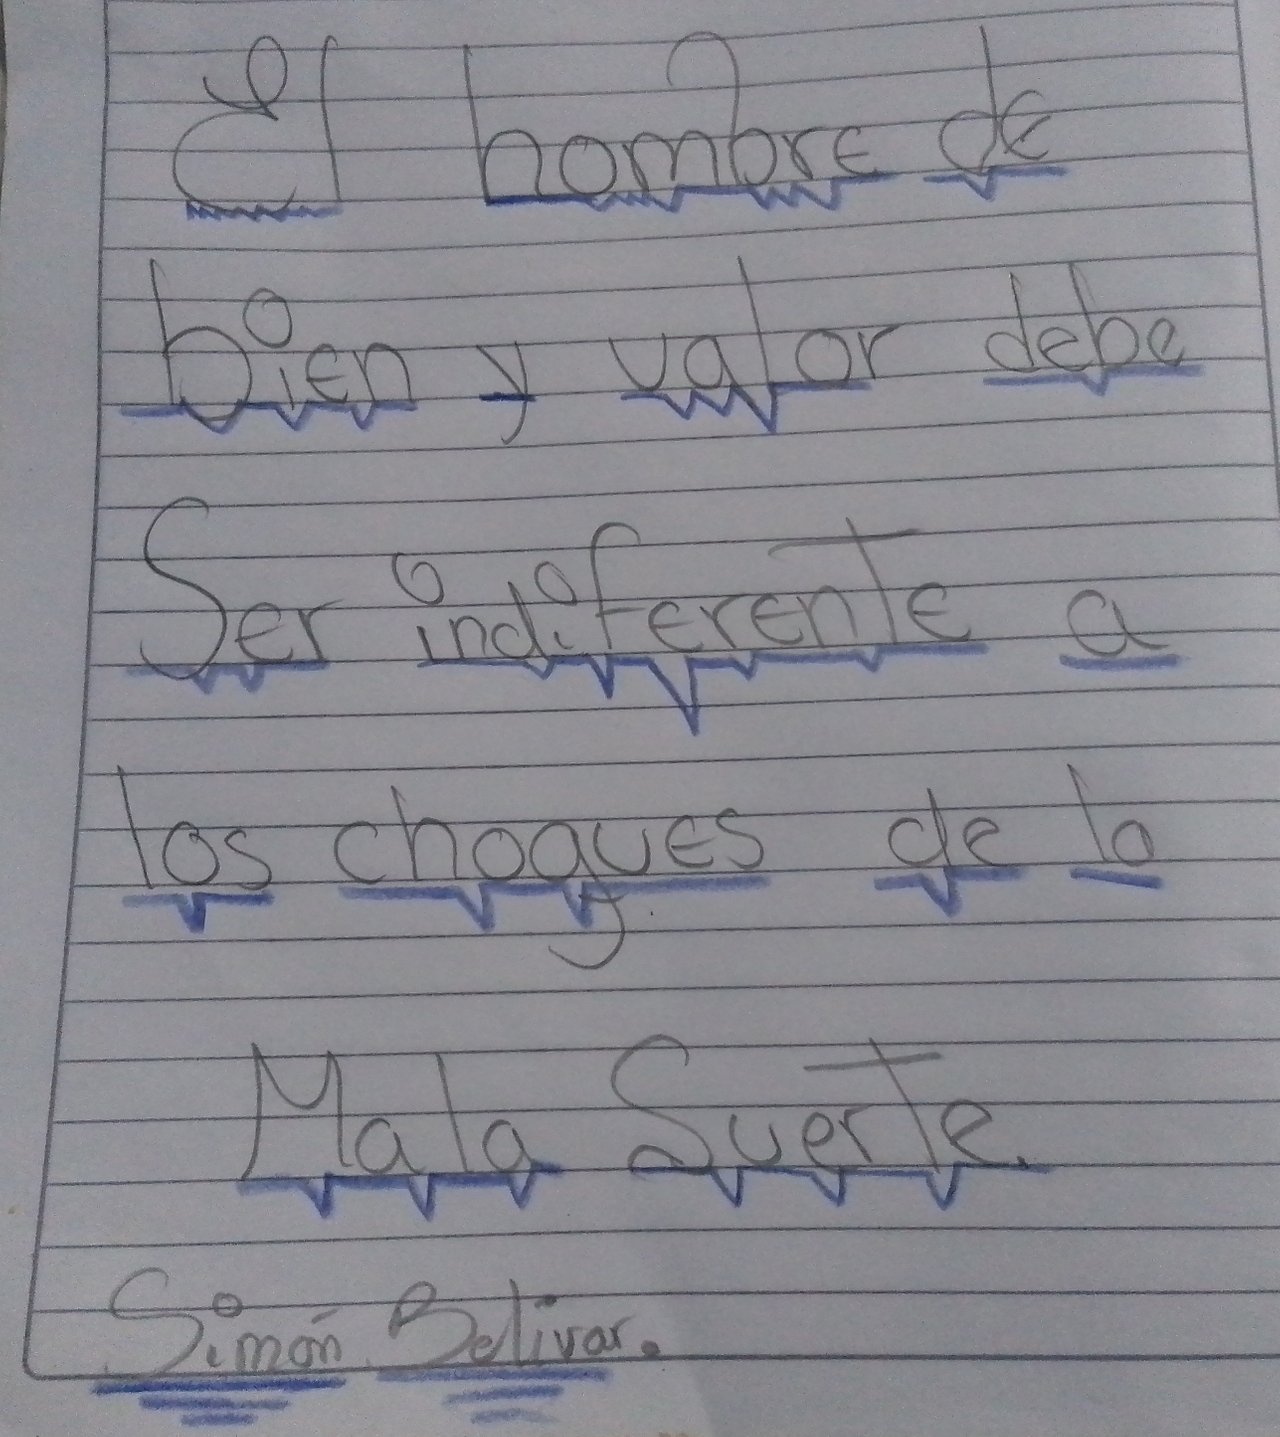 El hombre de
bien y valor debe
Ser indiferente a
los choques de la
Mala Suerte.
Simón Bolivar.